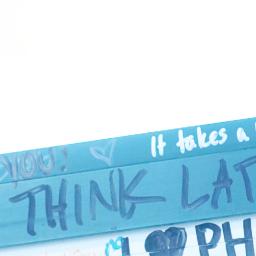 YOU: ♡ It takes a
THINK LAT
I ♥ PH